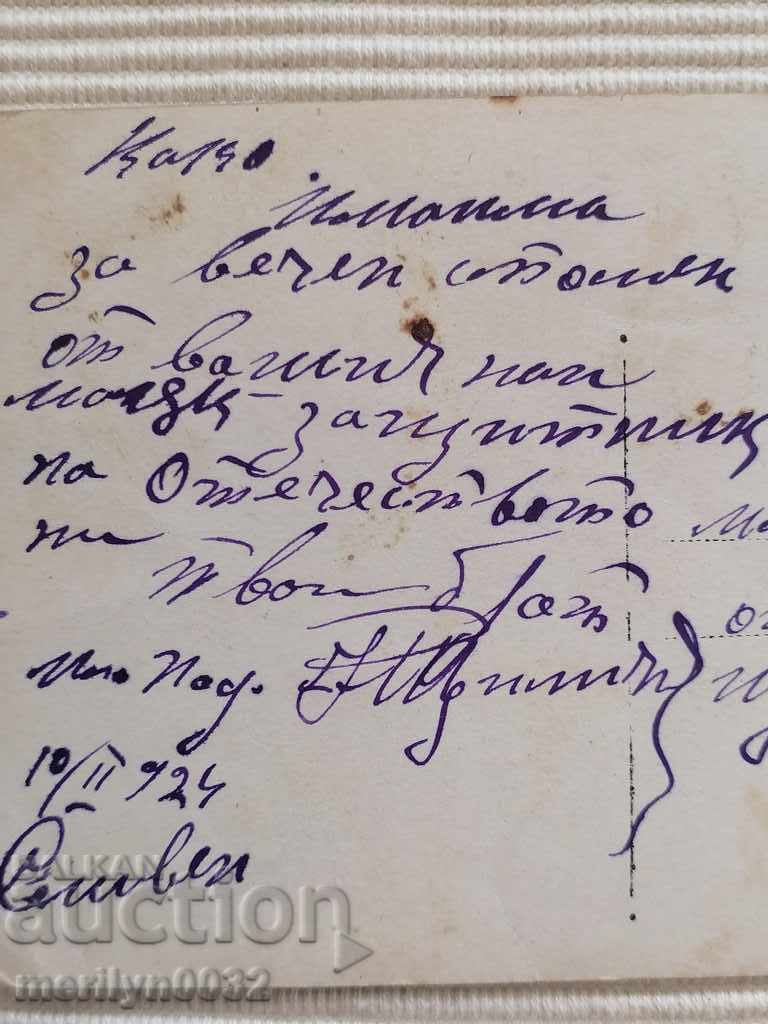 Како
за вечен спомен
от вашич най
малък защитник
на Отечеството
ни
твой брат
Под.
10/II 924
Сливен
ма
от
BALKAN
auction
merilyn0032